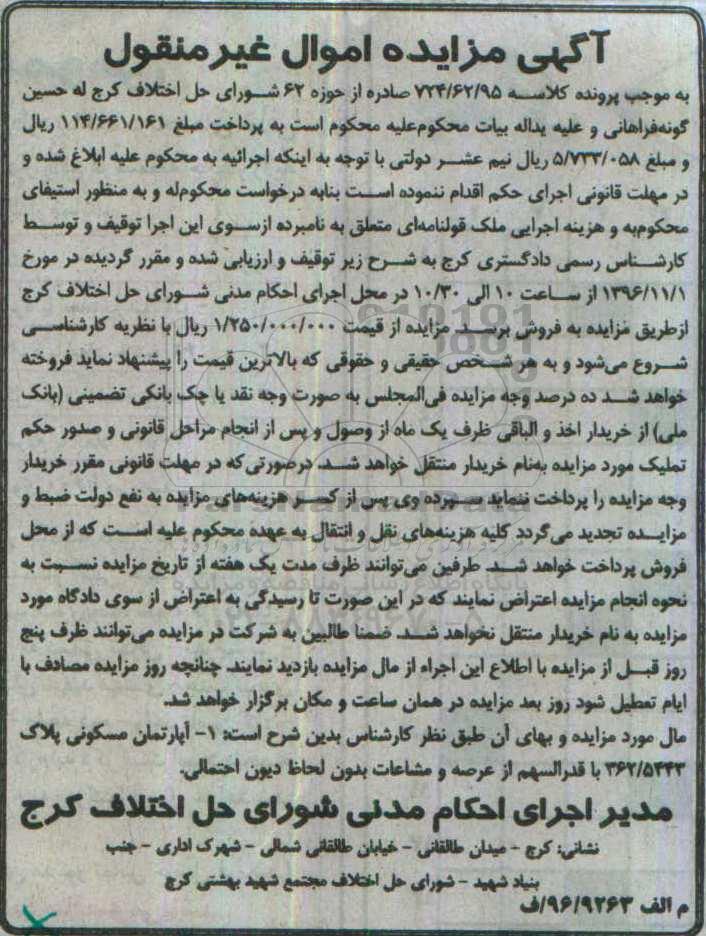 آگهی مزایده اموال غیرمنقول
به موجب پرونده کلاسه ۷۲۴/۶۲/۹۵ صادره از حوزه ۶۲ شورای حل اختلاف کرج له حسین
گونه‌فراهانی و علیه یداله بیات محکوم‌علیه محکوم است به پرداخت مبلغ ۱۱۴/۶۶۱/۱۶۱ ریال
و مبلغ ۵/۷۳۳/۰۵۸ ریال نیم عشر دولتی با توجه به اینکه اجرائیه به محکوم علیه ابلاغ شده و
در مهلت قانونی اجرای حکم اقدام ننموده است بنابه درخواست محکوم‌له و به منظور استیفای
محکوم‌به و هزینه اجرایی ملک قولنامه‌ای متعلق به نامبرده ازسوی این اجرا توقیف و توسط
کارشناس رسمی دادگستری کرج به شرح زیر توقیف و ارزیابی شده و مقرر گردیده در مورخ
۱۳۹۶/۱۱/۱ از ساعت ۱۰ الی ۱۰/۳۰ در محل اجرای احکام مدنی شورای حل اختلاف کرج
ازطریق مزایده به فروش برسد. مزایده از قیمت ۱/۲۵۰/۰۰۰/۰۰۰ ریال با نظریه کارشناسی
شروع می‌شود و به هر شخص حقیقی و حقوقی که بالاترین قیمت را پیشنهاد نماید فروخته
خواهد شد ده درصد وجه مزایده فی‌المجلس به صورت وجه نقد یا چک بانکی تضمینی (بانک
ملی) از خریدار اخذ و الباقی ظرف یک ماه از وصول و پس از انجام مراحل قانونی و صدور حکم
تملیک مورد مزایده به‌نام خریدار منتقل خواهد شد. درصورتی‌که در مهلت قانونی مقرر خریدار
وجه مزایده را پرداخت ننماید سپرده وی پس از کسر هزینه‌های مزایده به نفع دولت ضبط و
مزایده تجدید می‌گردد کلیه هزینه‌های نقل و انتقال به عهده محکوم علیه است که از محل
فروش پرداخت خواهد شد. طرفین می‌توانند ظرف مدت یک هفته از تاریخ مزایده نسبت به
نحوه انجام مزایده اعتراض نمایند که در این صورت تا رسیدگی به اعتراض از سوی دادگاه مورد
مزایده به نام خریدار منتقل نخواهد شد. ضمنا طالبین به شرکت در مزایده می‌توانند ظرف پنج
روز قبل از مزایده با اطلاع این اجراء از مال مزایده بازدید نمایند. چنانچه روز مزایده مصادف با
ایام تعطیل شود روز بعد مزایده در همان ساعت و مکان برگزار خواهد شد.
مال مورد مزایده و بهای آن طبق نظر کارشناس بدین شرح است: ۱- آپارتمان مسکونی پلاک
۳۶۲/۵۴۴۳ با قدرالسهم از عرصه و مشاعات بدون لحاظ دیون احتمالی.
مدیر اجرای احکام مدنی شورای حل اختلاف کرج
نشانی: کرج - میدان طالقانی - خیابان طالقانی شمالی - شهرک اداری - جنب
بنیاد شهید - شورای حل اختلاف مجتمع شهید بهشتی کرج
م الف ۹۶/۹۲۶۳/ف